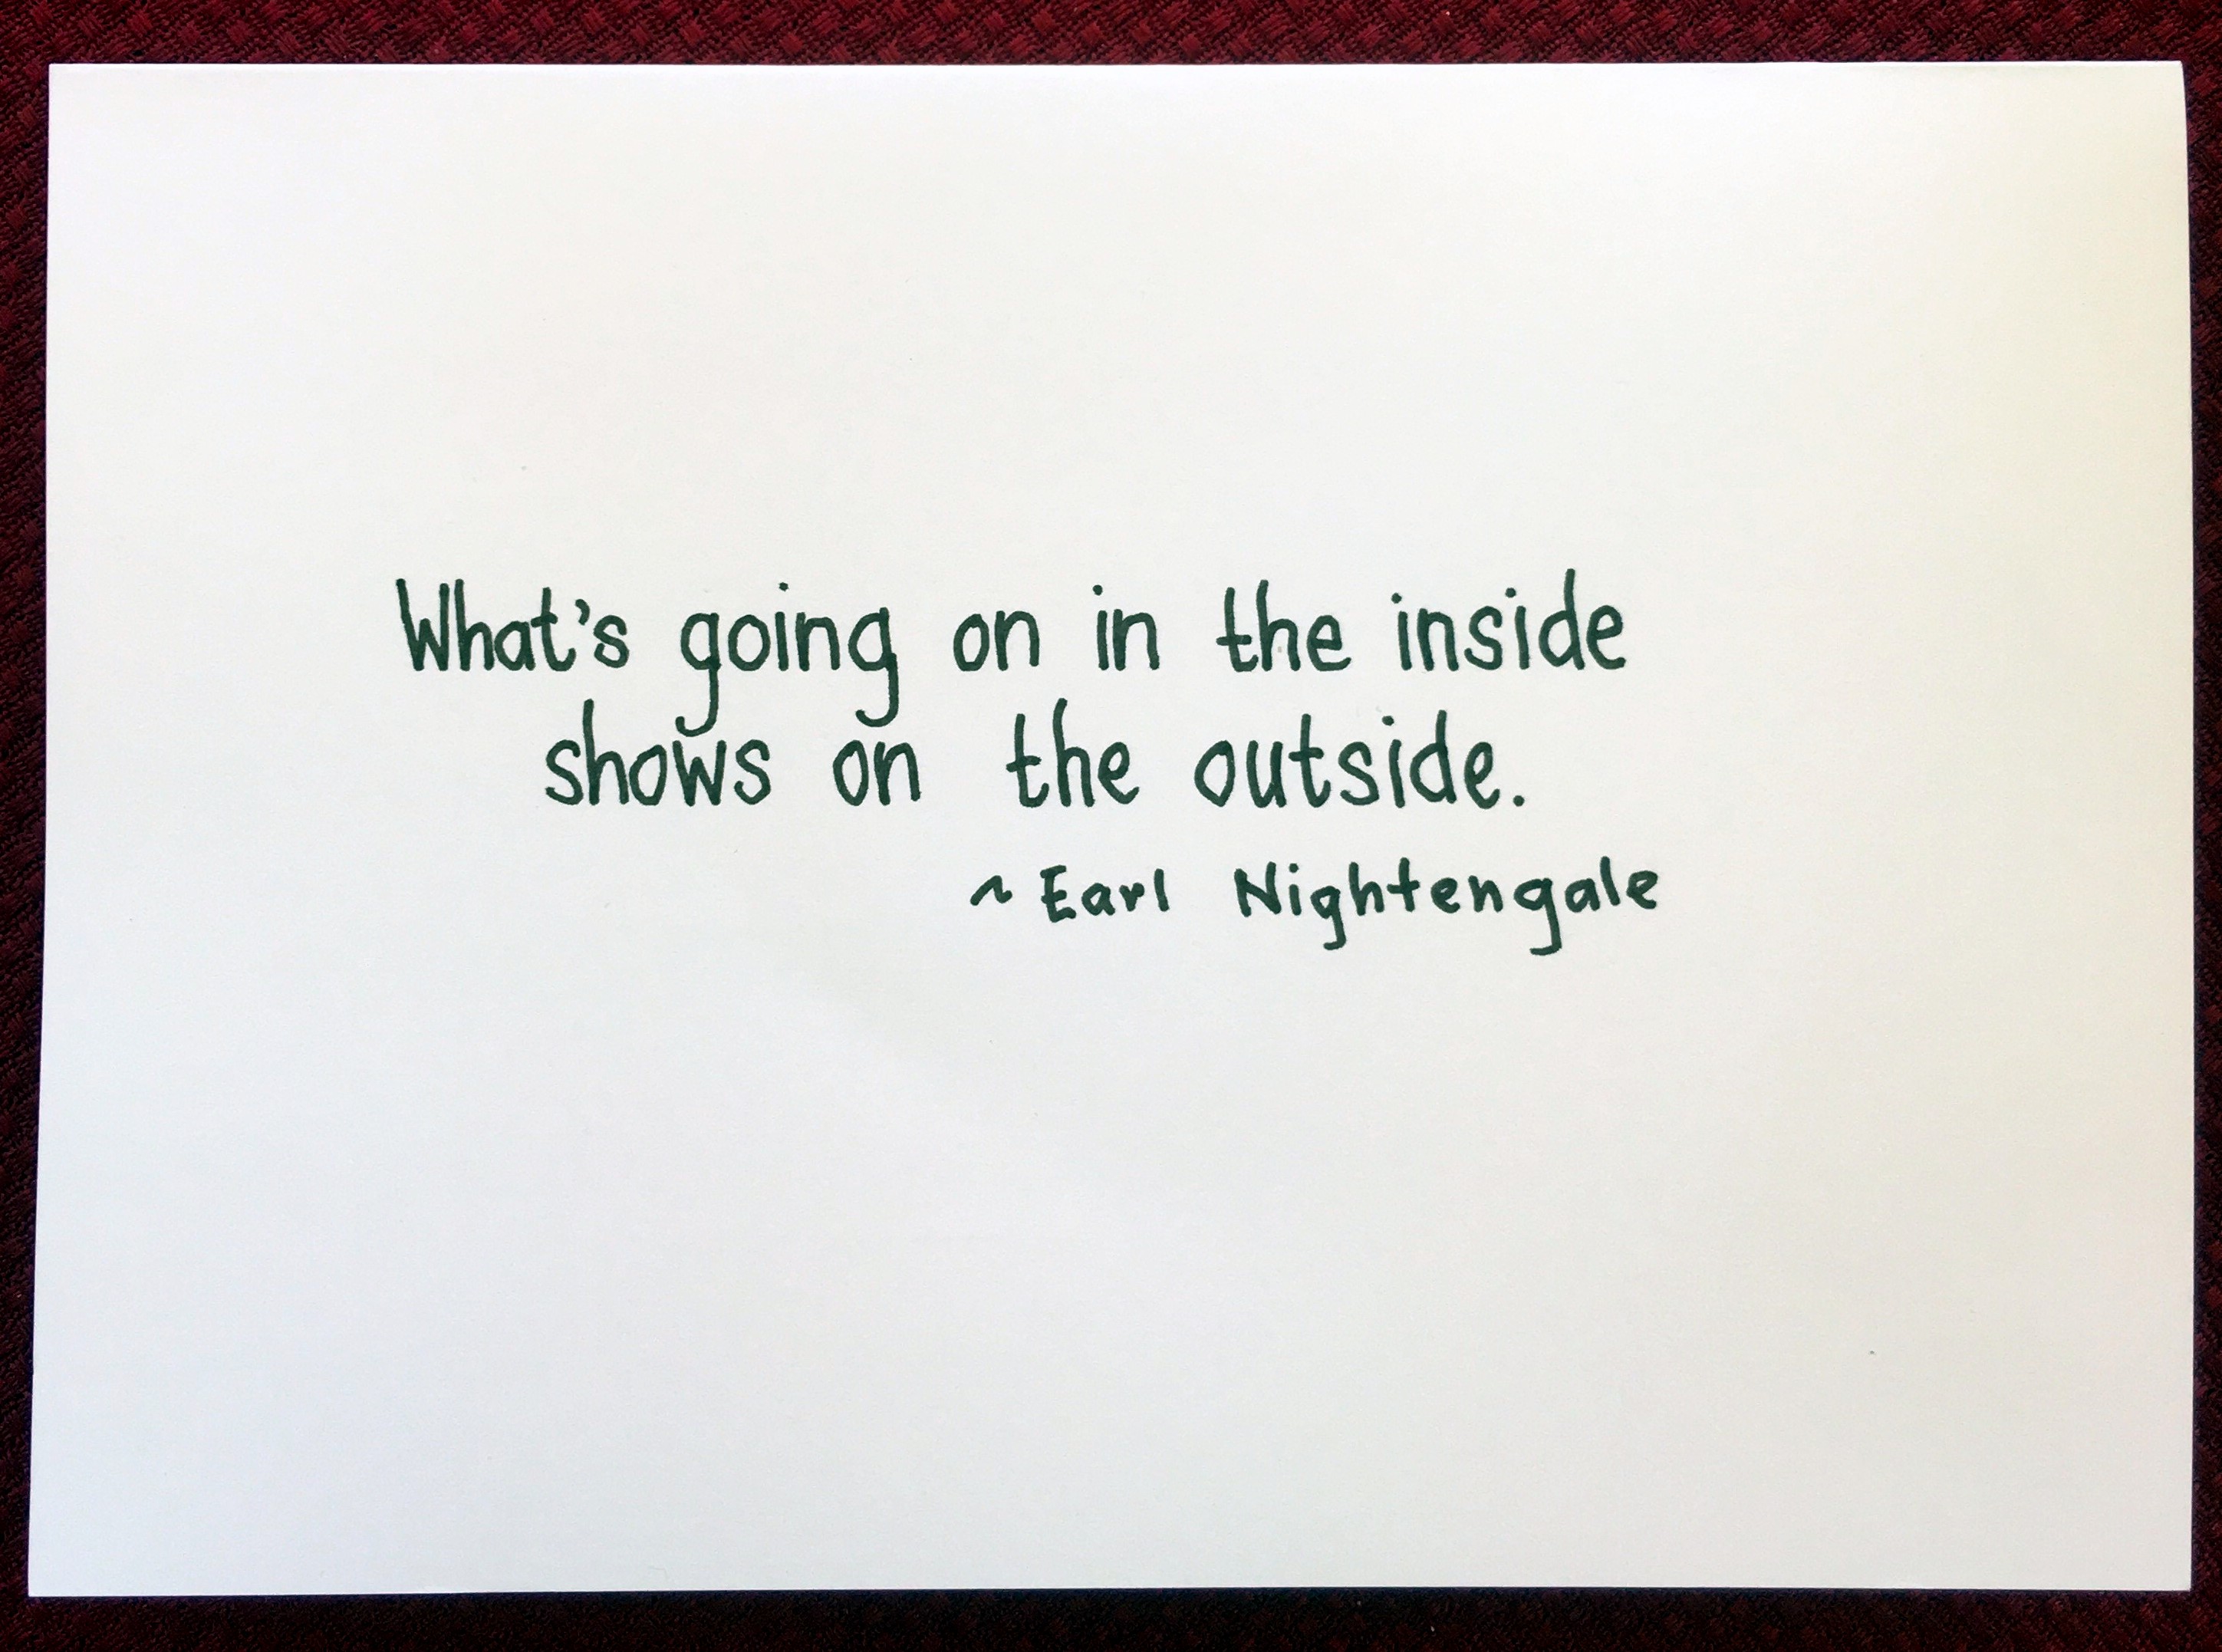 What's going on in the inside
shows on the outside.
~ Earl Nightengale